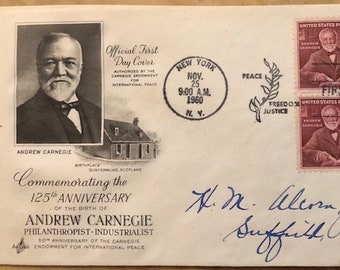 Official First
Day Cover
AUTHORIZED BY THE
CARNEGIE ENDOWMENT
FOR INTERNATIONAL PEACE
ANDREW CARNEGIE
BIRTHPLACE
DUNFERMLINE, SCOTLAND
Commemorating the
125th ANNIVERSARY
OF THE BIRTH OF
ANDREW CARNEGIE
PHILANTHROPIST-INDUSTRIALIST
50TH ANNIVERSARY OF THE CARNEGIE
ENDOWMENT FOR INTERNATIONAL PEACE
NEW YORK
NOV.
25
9:00 A.M.
1960
N. Y.
PEACE
FREEDOM
JUSTICE
UNITED STATES
ANDREW
CARNEGIE
FIRS
UNITED STATES
ANDREW
CARNEGIE
H. M. Alcorn
Suffield,